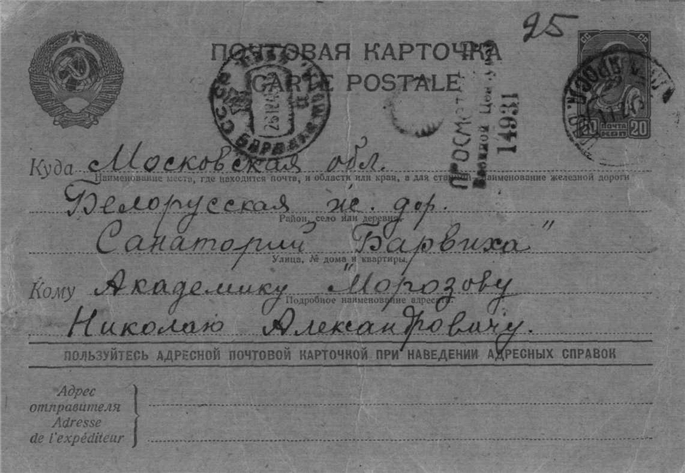 25
ПОЧТОВАЯ КАРТОЧКА
CARTE POSTALE
ПОЧТА
20 КОП 20
СССР
14931
Куда Московская обл.
Наименование места, где находится почта, и области или края, а для станций наименование железной дороги
Белорусская ж. дор.
Район, село или деревня
Санаторий „Барвиха"
Улица, № дома и квартиры
Кому Академику Морозову
Подробное наименование адресата
Николаю Александровичу.
ПОЛЬЗУЙТЕСЬ АДРЕСНОЙ ПОЧТОВОЙ КАРТОЧКОЙ ПРИ НАВЕДЕНИИ АДРЕСНЫХ СПРАВОК
Адрес
отправителя
Adresse
de l'expéditeur